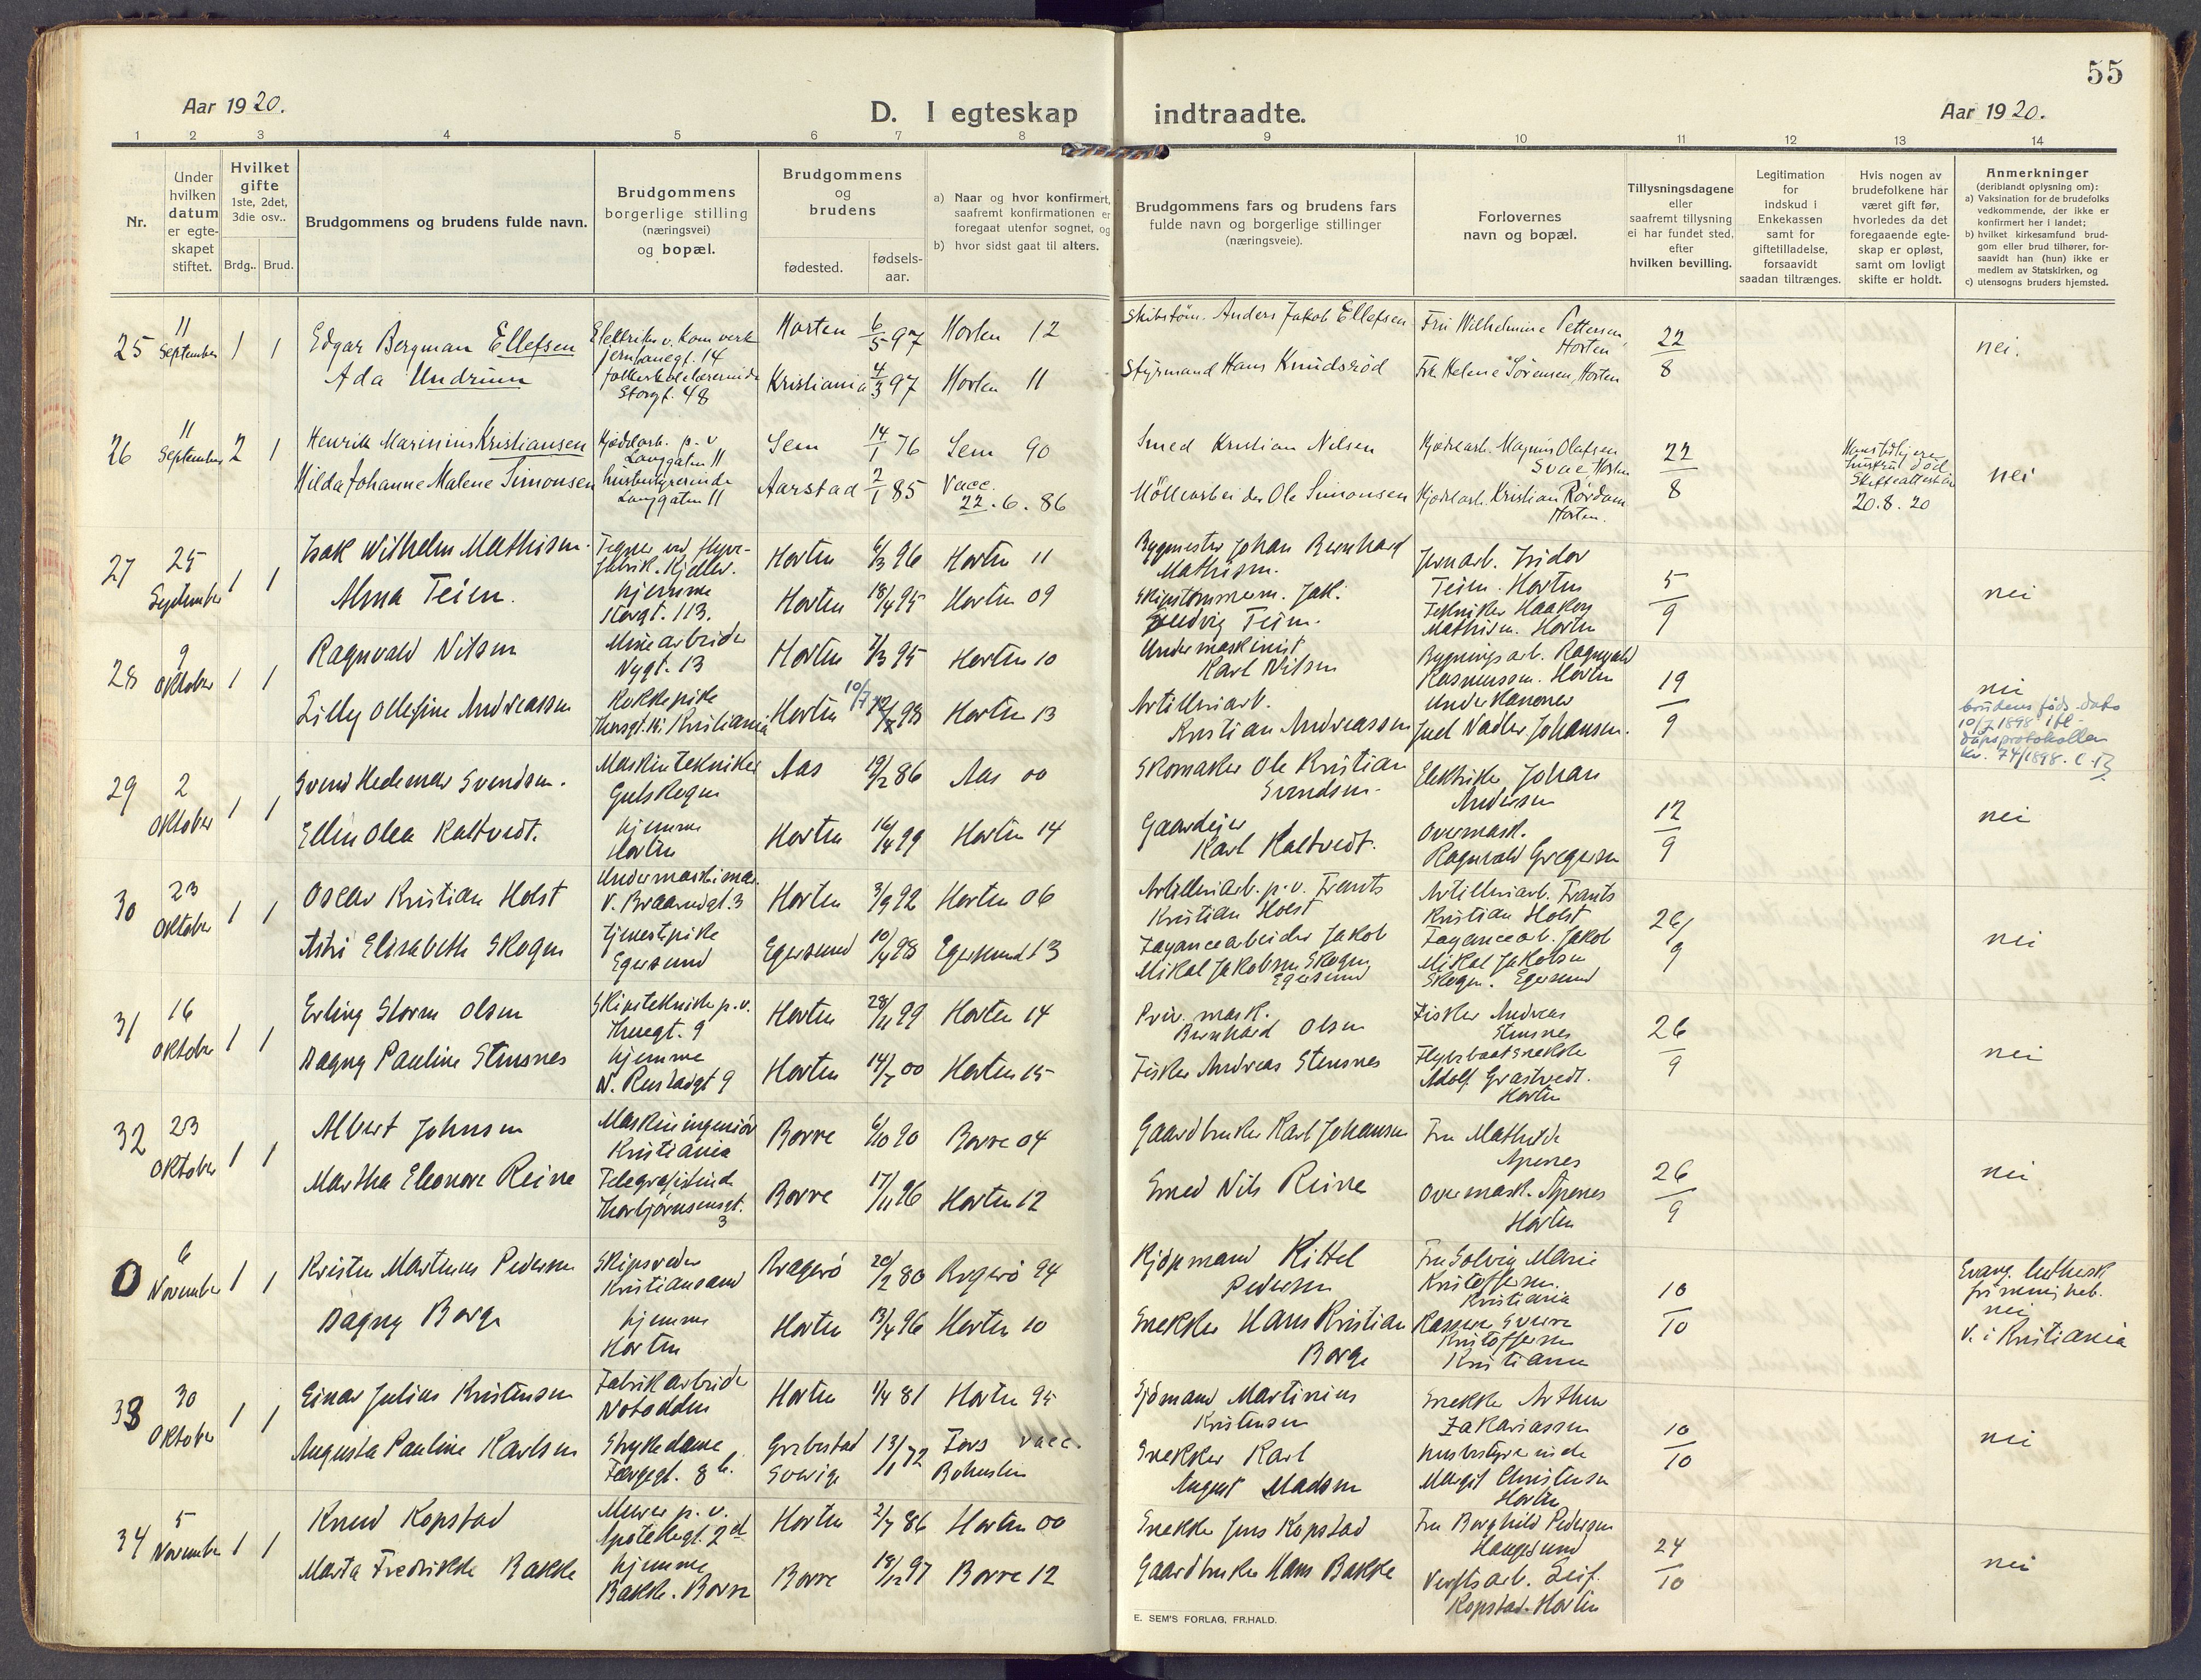 55
Aar 1920.
D. I egteskap indtraadte.
Aar 1920.
1 2 3 4 5 6 7 8 9 10 11 12 13 14
Nr.
Under
hvilken
datum
er egte-
skapet
stiftet.
Hvilket
gifte
1ste, 2det,
3die osv..
Brdg.. Brud.
Brudgommens og brudens fulde navn.
Brudgommens
borgerlige stilling
(næringsvei)
og bopæl.
Brudgommens
og
brudens
fødested.
fødsels-
aar.
a) Naar og hvor konfirmert,
saafremt konfirmationen er
foregaat utenfor sognet, og
b) hvor sidst gaat til alters.
Brudgommens fars og brudens fars
fulde navn og borgerlige stillinger
(næringsveie).
Forlovernes
navn og bopæl.
Tillysningsdagene
eller
saafremt tillysning
ei har fundet sted,
efter
hvilken bevilling.
Legitimation
for
indskud i
Enkekassen
samt for
giftetilladelse,
forsaavidt
saadan tiltrænges.
Hvis nogen av
brudefolkene har
været gift før,
hvorledes da det
foregaaende egte-
skap er opløst,
samt om lovligt
skifte er holdt.
Anmerkninger
(deriblandt oplysning om):
a) Vaksination for de brudefolks
vedkommende, der ikke er
konfirmert her i landet;
b) hvilket kirkesamfund brud-
gom eller brud tilhører, for-
saavidt han (hun) ikke er
medlem av Statskirken, og
c) utensogns bruders hjemsted.
25 11 September 1 1
Edgar Bergman Ellefsen
Elektriker v. Kom. verk
Jernbanegt. 14
Horten 6/5 97 Horten 12
Skibstøm. Anders Jakob Ellefsen
Fru Wilhelmine Pettersen,
Horten
22/8
nei.
Ada Undrum
folkeskolelærerinde
Storgt. 48
Kristiania 4/3 97 Horten 11
Styrmand Hans Knudsrød
Frk. Helene Sørensen, Horten
26 11 September 2 1
Henrik Marinius Kristiansen
Kjedelarb. p. v
Langgaten 11
Sem 14/1 76 Sem 90
Smed Kristian Nilsen
Kjedelarb. Magnus Olafsen
Svae Horten
22/8
20.8.20
nei
Hilda Johanne Malene Simonsen
husbestyrerinde
Langgaten 11
Aarstad 2/1 85 Vacc.
22.6.86
Møllearbeider Ole Simonsen
Kjedelarb. Kristian Rørdam
Horten.
27 25 September 1 1
Isak Wilhelm Mathisen.
Tegner ved Flyve-
fabrik. Kjeller.
Horten 6/3 96 Horten 11
Bygmester Johan Bernhard
Mathisen.
Jernarb. Isidor
Teien. Horten
5/9
nei
Alma Teien.
hjemme
Storgt. 113.
Horten 18/4 95 Horten 09
Skipstømmerm. Jak.
Ludvig Teien.
Tekniker Haakon
Mathisen. Horten
28 9 Oktober 1 1
Ragnvald Nilsen
Minearbeider
Nygt. 13
Horten 7/3 95 Horten 10
Undermaskinist
Karl Nilsen
Bygningsarb. Ragnvald
Rasmussen. Horten
19/9
nei
Lilly Ollefine Andreassen
Kokkepike
Kristiania
Horten 10/7 98 Horten 13
Artilleriarb.
Kristian Andreassen
Underkanoner
Juel Nadler Johansen.
brudens føds. dato
10/7 1898 ifl.
dåpsprotokollen
nr. 74/1898.
29 2 Oktober 1 1
Svend Hedemar Svendsen.
Maskintekniker
Gulskogen
Aas 19/12 86 Aas 00
Skomaker Ole Kristian
Svendsen.
Elektriker Johan
Andersen
12/9
nei
Ellen Olea Kaltvedt.
hjemme
Horten
Horten 16/4 99 Horten 14
Gaardeier
Karl Kaltvedt.
Overmask.
Ragnvald Gregersen
30 23 Oktober 1 1
Oscar Kristian Holst
V. Braarudgt. 3
Horten 3/9 92 Horten 06
Artilleriarb. p. v. Frants
Kristian Holst
Artilleriarb. Frants
Kristian Holst
26/9
nei
Astri Elisabeth Skogen
Tjenestepike
Egersund
Egersund 10/4 98 Egersund 13
Fayancearbeider Jakob
Mikal Jakobsen Skogen
Egersund
Fayancearb. Jakob
Mikal Jakobsen
Skogen. Egersund
31 16 Oktober 1 1
Erling Storm Olsen
Skipstekniker p. v.
Thuegt. 9
Horten 28/11 99 Horten 14
Priv. mask.
Bernhard Olsen
Fisker Andreas
Stensnes
26/9
nei
Dagny Pauline Stensnes
hjemme
N. Rustadgt 9
Horten 14/7 00 Horten 15
Fisker Andreas Stensnes
Flyvebaatsnekker
Adolf Grastvedt.
Horten
32 23 Oktober 1 1
Albert Johnsen
Maskiningeniør
Kristiania
Borre 6/10 90 Borre 04
Gaardbruker Karl Johansen
Fru Mathilde
Apenes
26/9
nei
Martha Eleonore Reine
Telegrafistinde
Thorbjørnsensgt.
3
Borre 17/11 96 Horten 12
Smed Nils Reine
Overmask. Apenes
Horten
0 6 November 1 1
Kristen Martinus Pedersen
Skipsreder
Kristiansand
Kragerø 20/2 80 Kragerø 94
Kjøpmand Kittel
Pedersen
Fru Solveig Marie
Kristoffersen.
Kristiania
10/10
Evang. luthersk
frimenighet.
nei
V. i Kristiania
Dagny Borge
hjemme
Horten
Horten 13/4 96 Horten 10
Snekker Hans Kristian
Borge
Kasserer Sverre
Kristoffersen
Kristiania
33 30 Oktober 1 1
Einar Julius Kristensen
Fabrikarbeider
Notodden
Horten 1/4 81 Horten 95
Sjømand Martinius
Kristensen
Snekker Arthur
Zakariassen
10/10
nei
Augusta Pauline Karlsen
Strykedame
Færgegt. 8 b.
Grebestad
Sverige
13/1 72 Fors vacc.
Bohuslen
Snekker Karl
August Madsen
husbestyrerinde
Margit Christensen
Horten
34 5 November 1 1
Knud Kopstad
Murer p. v.
Apotekergt. 2 d
Horten 2/7 86 Horten 00
Snekker Jens Kopstad
Fru Borghild Pedersen
Haugesund
24/10
nei
Marta Fredrikke Bakke
hjemme
Bakke. Borre
Borre 18/12 97 Borre 12
Gaardbruker Hans Bakke
Verftsarb. Leif
Kopstad. Horten
E. SEM'S FORLAG, FR.HALD.